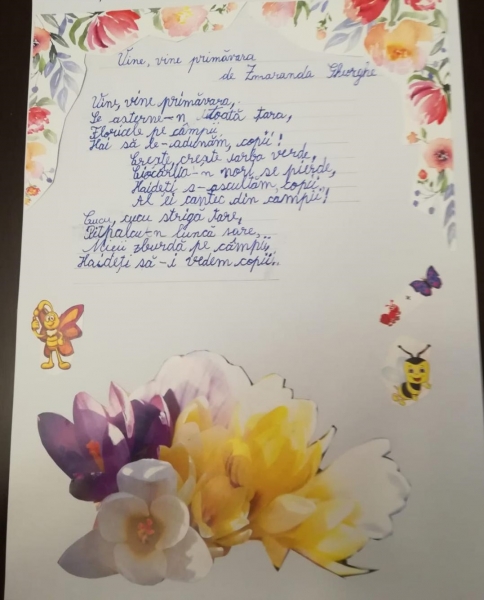 Vine, vine primăvara
de Zmaranda Gheorghe
Vine, vine primăvara,
Se așterne-n toată țara,
Floricele pe câmpii
Hai să le-adunăm, copii!
Crește, crește iarba verde,
Ciocârlia-n nori se pierde,
Haideți s-ascultăm, copii,
Al ei cântec din câmpii!
Cucu, cucu strigă tare,
Pitpalcu-n luncă sare,
Mieii zburdă pe câmpii,
Haideți să-i vedem copii.